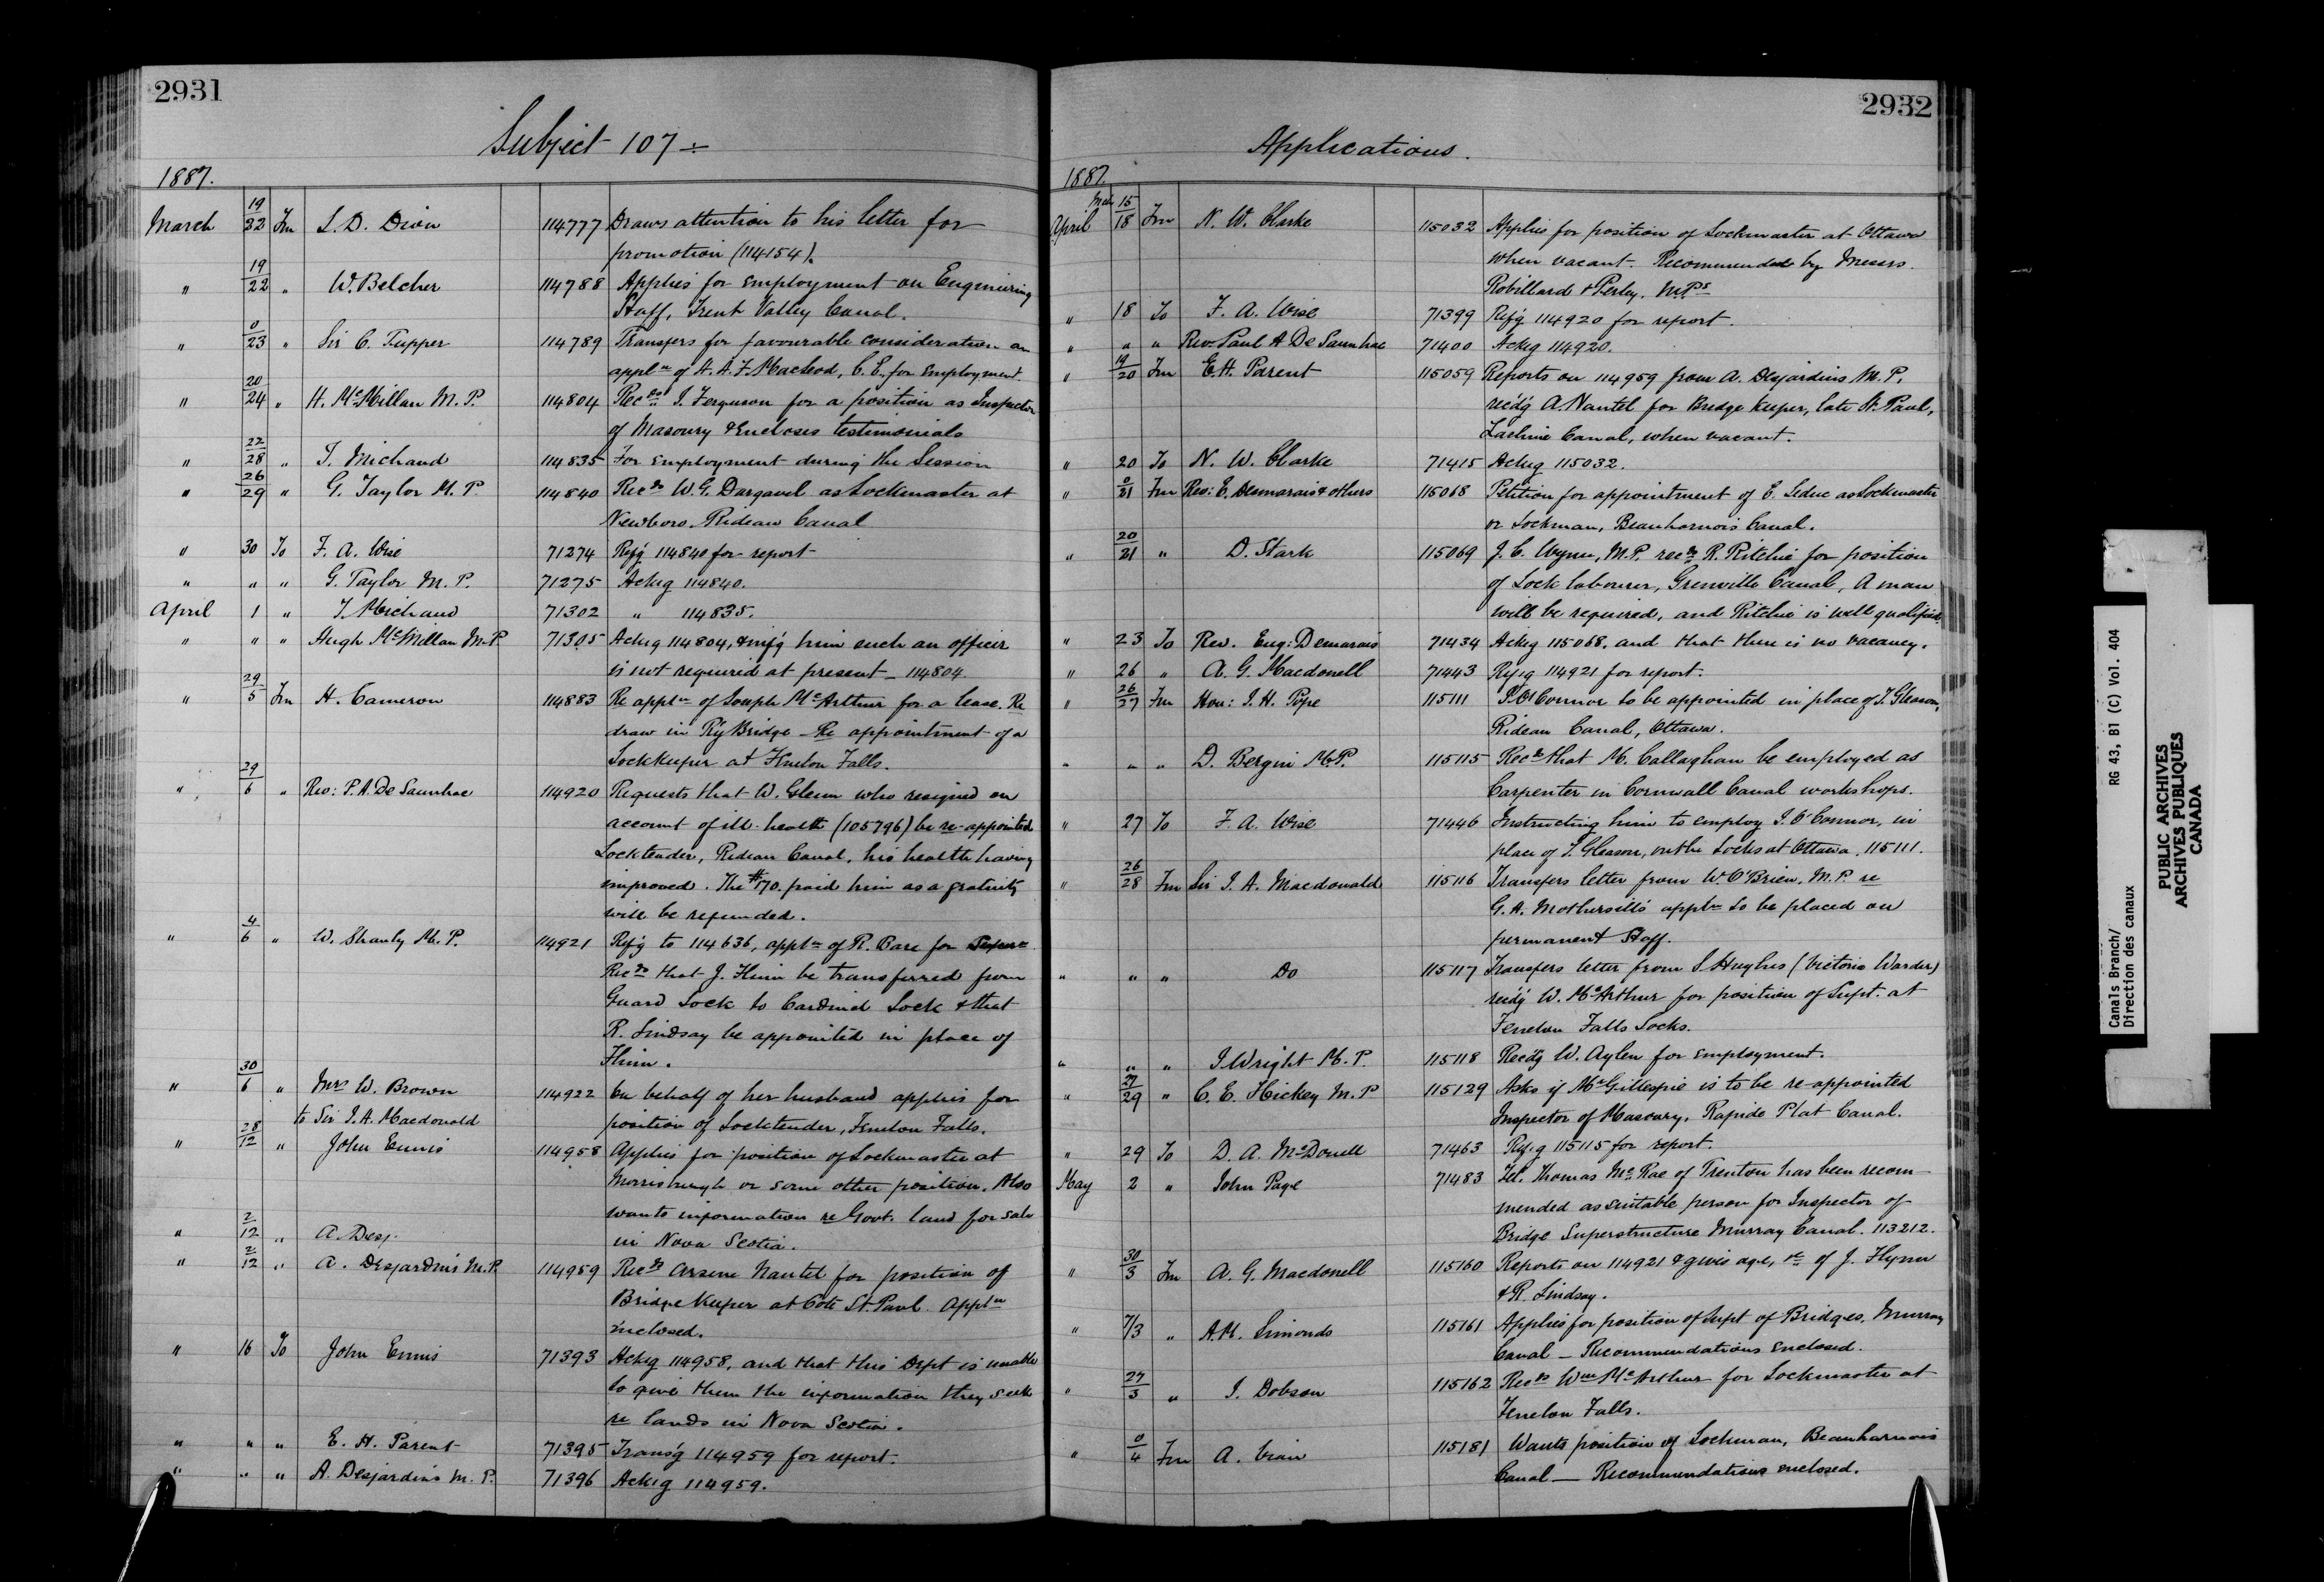 2931
Subject 107
1887.
March 19/22 Fm L. D. Dion 114777 Draws attention to his letter for
promotion (114154).
" 19/22 " W. Belcher 114788 Applies for employment on Engineering
Staff, Trent Valley Canal.
" 0/23 " Sir C. Tupper 114789 Transfers for favourable consideration an
appln of H. A. F. MacLeod, C. E. for employment.
" 20/24 " H. McMillan M. P. 114804 Recds J. Ferguson for a position as Inspector
of Masonry & Encloses testimonials
" 22/28 " T. Michaud 114835 For employment during the Session
" 26/29 " G. Taylor M. P. 114840 Recds W. G. Dargavel as Lockmaster at
Newboro, Rideau Canal
" 30 To F. A. Wise 71274 Refg 114840 for report
" " " G. Taylor M. P. 71275 Ackg 114840.
April 1 " T. Michaud 71302 " 114835.
" " " Hugh McMillan M.P 71305 Ackg 114804, & infg him such an officer
is not required at present _ 114804.
" 29/5 Fm H. Cameron 114883 Re appln of Joseph McArthur for a lease. Re
draw in Ry Bridge _ Re appointment of a
Lockkeeper at Fenelon Falls.
" 29/6 " Rev: P. A. De Saunhac 114920 Requests that W. Glenn who resigned on
account of ill-health (105796) be re-appointed
Locktender, Rideau Canal, his health having
improved. The $170. paid him as a gratuity
will be refunded.
" 4/6 " W. Shanly M. P. 114921 Refg to 114636, appln of R. Bare for
Recds that J. Flinn be transferred from
Guard Lock to Cardinal Lock & that
R. Lindsay be appointed in place of
Flinn.
" 30/6 " Mrs W. Brown 114922 On behalf of her husband applies for
to Sir J. A. Macdonald position of Locktender, Fenelon Falls.
" 28/12 " John Ennis 114958 Applies for position of Lockmaster at
Morrisburgh or some other position. Also
wants information re Govt. land for sale
in Nova Scotia.
" 2/12 " A. Desj.
" 2/12 " A. Desjardins M.P. 114959 Recds Arsene Nantel for position of
Bridge Keeper at Cote St. Paul. Appln
inclosed.
" 16 To John Ennis 71393 Ackg 114958, and that this Dept is unable
to give them the information they seek
re lands in Nova Scotia.
" " " E. H. Parent 71395 Transg 114959 for report.
" " " A. Desjardins M. P. 71396 Ackg 114959.
2932
Applications.
1887.
Mch 15
April 18 Fm N. W. Clarke 115032 Applies for position of Lockmaster at Ottawa
when vacant. Recommended by Messrs.
Robillard & Perley. M.Ps
" 18 To F. A. Wise 71399 Refg 114920 for report.
" " " Rev. Paul A De Saunhac 71400 Ackg 114920.
" 19/20 Fm E. H. Parent 115059 Reports on 114959 from A. Desjardins M. P.
recdg A. Nantel for Bridge Keeper, Cote St. Paul,
Lachine Canal, when vacant.
" 20 To N. W. Clarke 71415 Ackg 115032.
" 0/21 Fm Rev: E. Desmarais & others 115068 Petition for appointment of E. Leduc as Lockmaster
or Lockman, Beauharnois Canal.
" 20/21 " D. Stark 115069 J. C. Wyner, M.P. recds R. Ritchie for position
of Lock labourer, Grenville Canal, A man
will be required, and Ritchie is well qualified.
" 23 To Rev. Eug: Demarais 71434 Ackg 115068, and that there is no vacancy.
" 26 " A. G. Macdonell 71443 Refg 114921 for report.
" 26/27 Fm Hon: J. H. Pope 115111 O'Connor to be appointed in place of T. Gleason,
Rideau Canal, Ottawa.
" " " D. Bergin M.P. 115115 Recds that M. Callaghan be employed as
Carpenter in Cornwall Canal workshops.
" 27 To F. A. Wise 71446 Instructing him to employ J. O'Connor, in
place of T. Gleason, on the Locks at Ottawa. 115111.
" 26/28 Fm Sir J. A. Macdonald 115116 Transfers letter from W. O'Brien, M.P. re
G. A. Mothersill's appln to be placed on
permanent Staff.
" " " Do 115117 Transfers letter from S. Hughes (Victoria Warder)
recdg W. McArthur for position of Supt. at
Fenelon Falls Locks.
" " " J. Wright M. P. 115118 Recdg W. Aylen for employment.
" 27/29 " C. E. Hickey M. P 115129 Asks if Mr Gillespie is to be re-appointed
Inspector of Masonry, Rapide Plat Canal.
" 29 To D. A. McDonell 71463 Refg 115115 for report.
May 2 " John Page 71483 Tel. Thomas McRae of Trenton has been recom-
mended as suitable person for Inspector of
Bridge Superstructure Murray Canal. 113212.
" 30/3 Fm A. G. Macdonell 115160 Reports on 114921 & gives age, &c of J. Flynn
& R. Lindsay.
" 7/3 " A. M. Simonds 115161 Applies for position of Supt of Bridges, Murray
Canal _ Recommendations enclosed.
" 27/3 " J. Dobson 115162 Recds Wm McArthur for Lockmaster at
Fenelon Falls.
" 0/4 Fm A. 115181 Wants position of Lockman, Beauharnois
Canal _ Recommendations enclosed.
Canals Branch/ RG 43, B1 (C) Vol. 404
Direction des canaux
PUBLIC ARCHIVES
ARCHIVES PUBLIQUES
CANADA